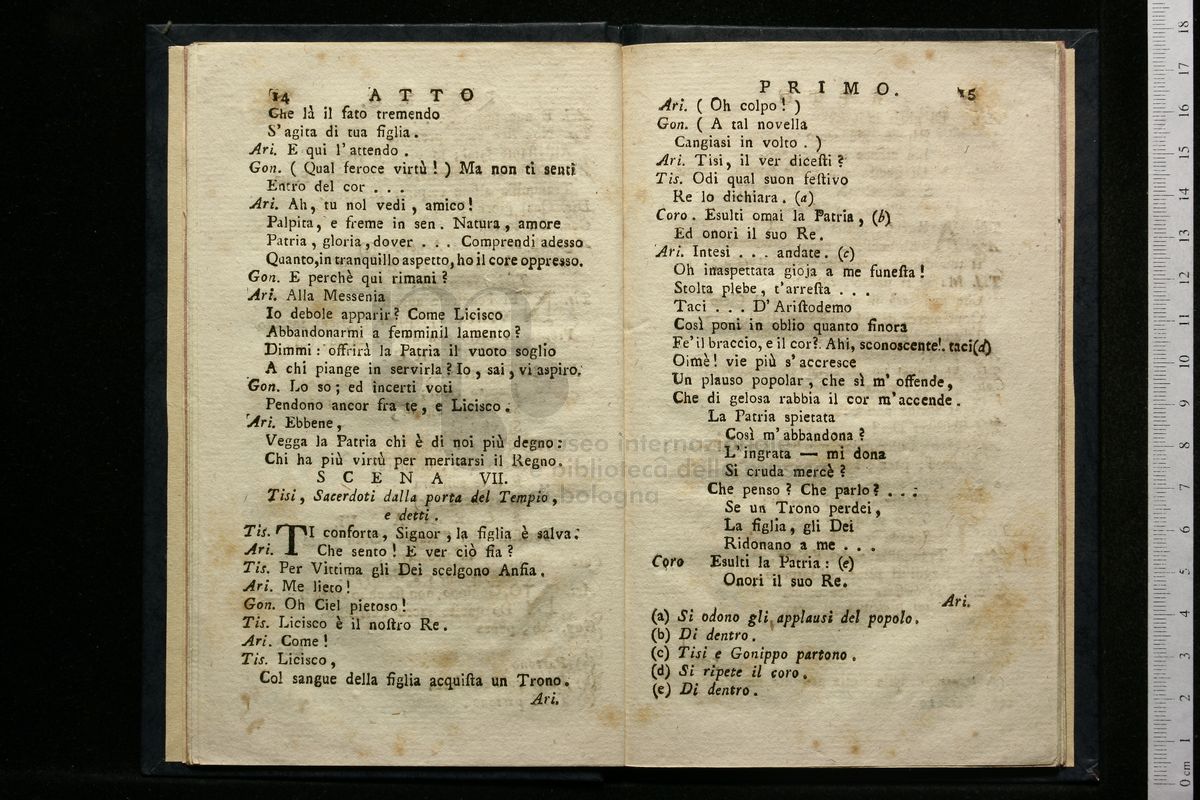 14 ATTO
Che là il fato tremendo
S'agita di tua figlia.
Ari. E qui l'attendo.
Gon. ( Qual feroce virtù! ) Ma non ti senti
Entro del cor . . .
Ari. Ah, tu nol vedi, amico!
Palpita, e freme in sen. Natura, amore
Patria, gloria, dover . . . Comprendi adesso
Quanto, in tranquillo aspetto, ho il core oppresso.
Gon. E perchè qui rimani?
Ari. Alla Messenia
Io debole apparir? Come Licisco
Abbandonarmi a femminil lamento?
Dimmi: offrirà la Patria il vuoto soglio
A chi piange in servirla? Io, sai, vi aspiro.
Gon. Lo so; ed incerti voti
Pendono ancor fra te, e Licisco.
Ari. Ebbene,
Vegga la Patria chi è di noi più degno:
Chi ha più virtù per meritarsi il Regno.
SCENA VII.
Tisi, Sacerdoti dalla porta del Tempio,
e detti.
Tis. TI conforta, Signor, la figlia è salva.
Ari. Che sento! E ver ciò fia?
Tis. Per Vittima gli Dei scelgono Anfia.
Ari. Me lieto!
Gon. Oh Ciel pietoso!
Tis. Licisco è il noſtro Re.
Ari. Come!
Tis. Licisco,
Col sangue della figlia acquiſta un Trono.
Ari.
PRIMO. 15
Ari. ( Oh colpo! )
Gon. ( A tal novella
Cangiasi in volto. )
Ari. Tisi, il ver diceſti?
Tis. Odi qual suon feſtivo
Re lo dichiara. (a)
Coro. Esulti omai la Patria, (b)
Ed onori il suo Re.
Ari. Intesi . . . andate. (c)
Oh inaspettata gioja a me funeſta!
Stolta plebe, t'arreſta . . .
Taci . . . D'Ariſtodemo
Così poni in oblio quanto finora
Fe' il braccio, e il cor? Ahi, sconoscente!. taci (d)
Oimè! vie più s'accresce
Un plauso popolar, che sì m'offende,
Che di gelosa rabbia il cor m'accende.
La Patria spietata
Così m'abbandona?
L'ingrata — mi dona
Si cruda mercè?
Che penso? Che parlo? . . .
Se un Trono perdei,
La figlia, gli Dei
Ridonano a me . . .
Coro Esulti la Patria: (e)
Onori il suo Re.
Ari.
(a) Si odono gli applausi del popolo.
(b) Di dentro.
(c) Tisi e Gonippo partono.
(d) Si ripete il coro.
(e) Di dentro.
museo internazionale
biblioteca della
bologna
0 cm 1 2 3 4 5 6 7 8 9 10 11 12 13 14 15 16 17 18